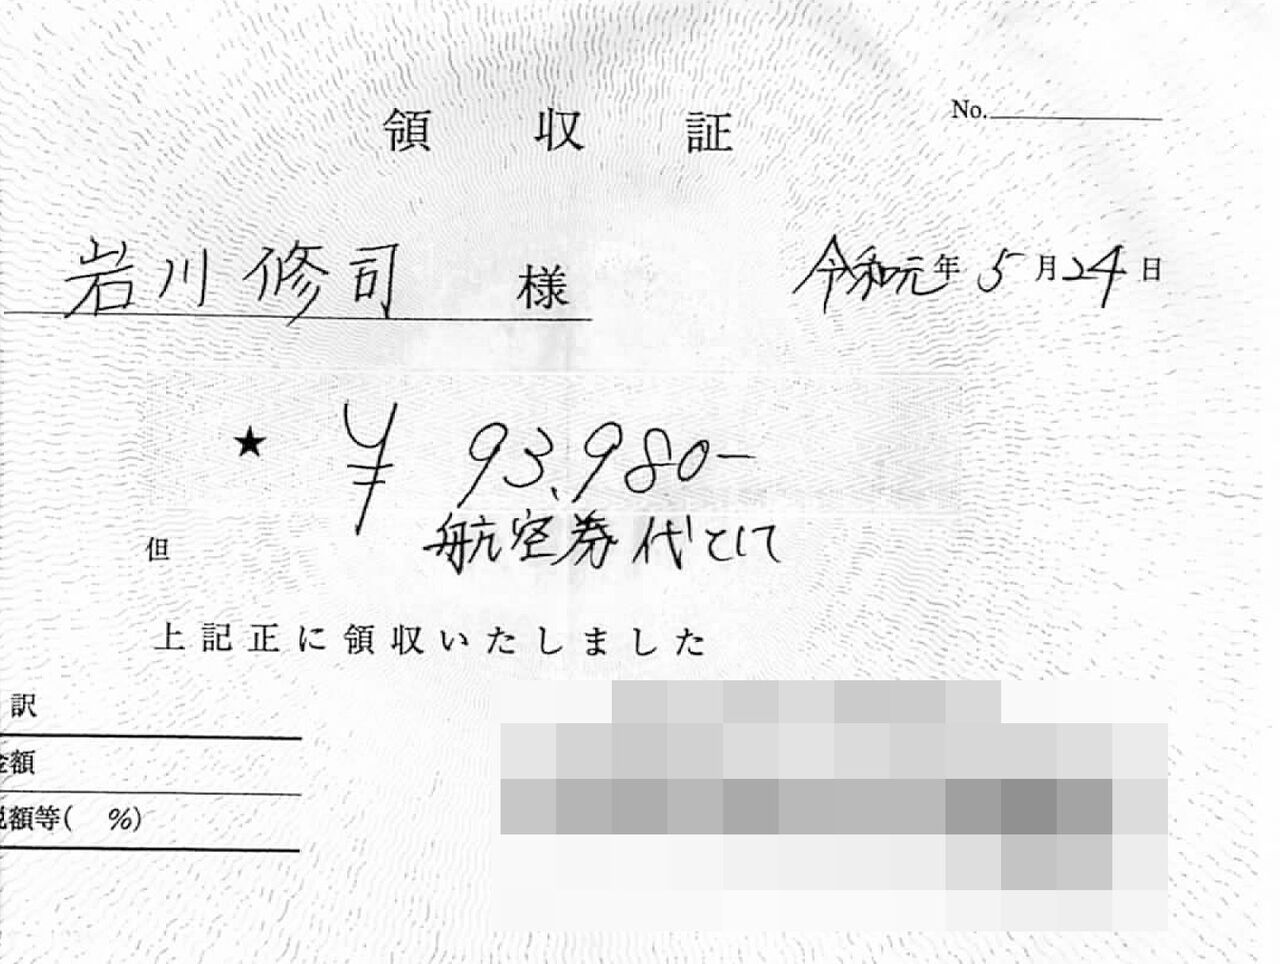 領収証
No.
岩川修司 様
令和元年 5月24日
★ ¥93,980-
但 航空券代として
上記正に領収いたしました
訳
金額
税額等( %)